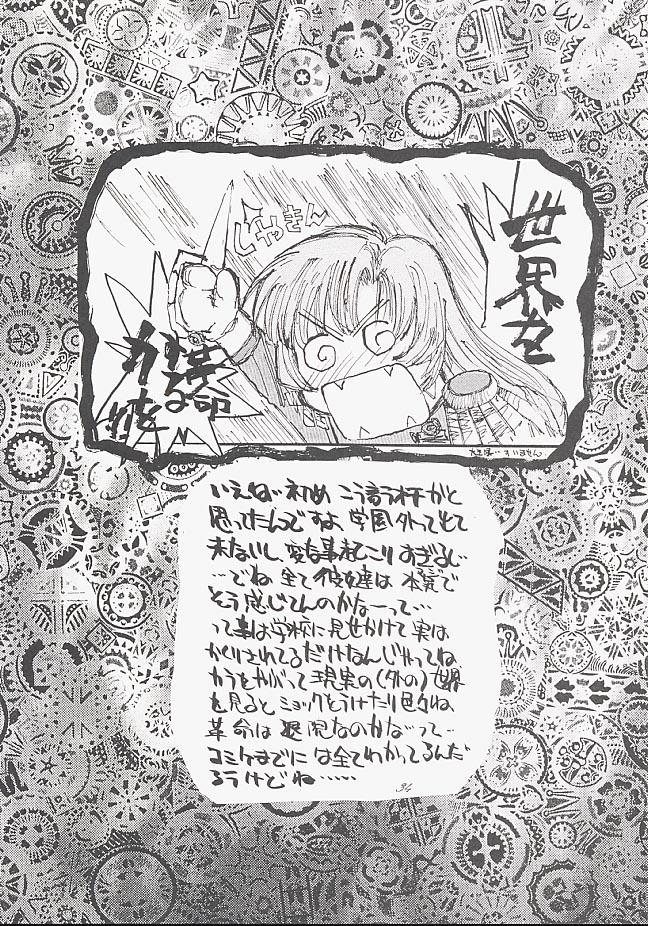 世界を
じゃきん
革命
する
力を
いえね 初め こう言う
思ってたんですよ 学園外って出て
来ないし、変な事起こりすぎるし…
…でね 全て彼女達は 本気で
そう感じてんのかなーって…
って事は学校に見せかけて実は
かくりされてるだけなんじゃってね
だうをかがって現実の(外の)世界
を見ると ショックをうけたり色々ね、
革命は 退院なのかなって…
コミケまでに は全てわかってるんだ
ろうけどね……
34